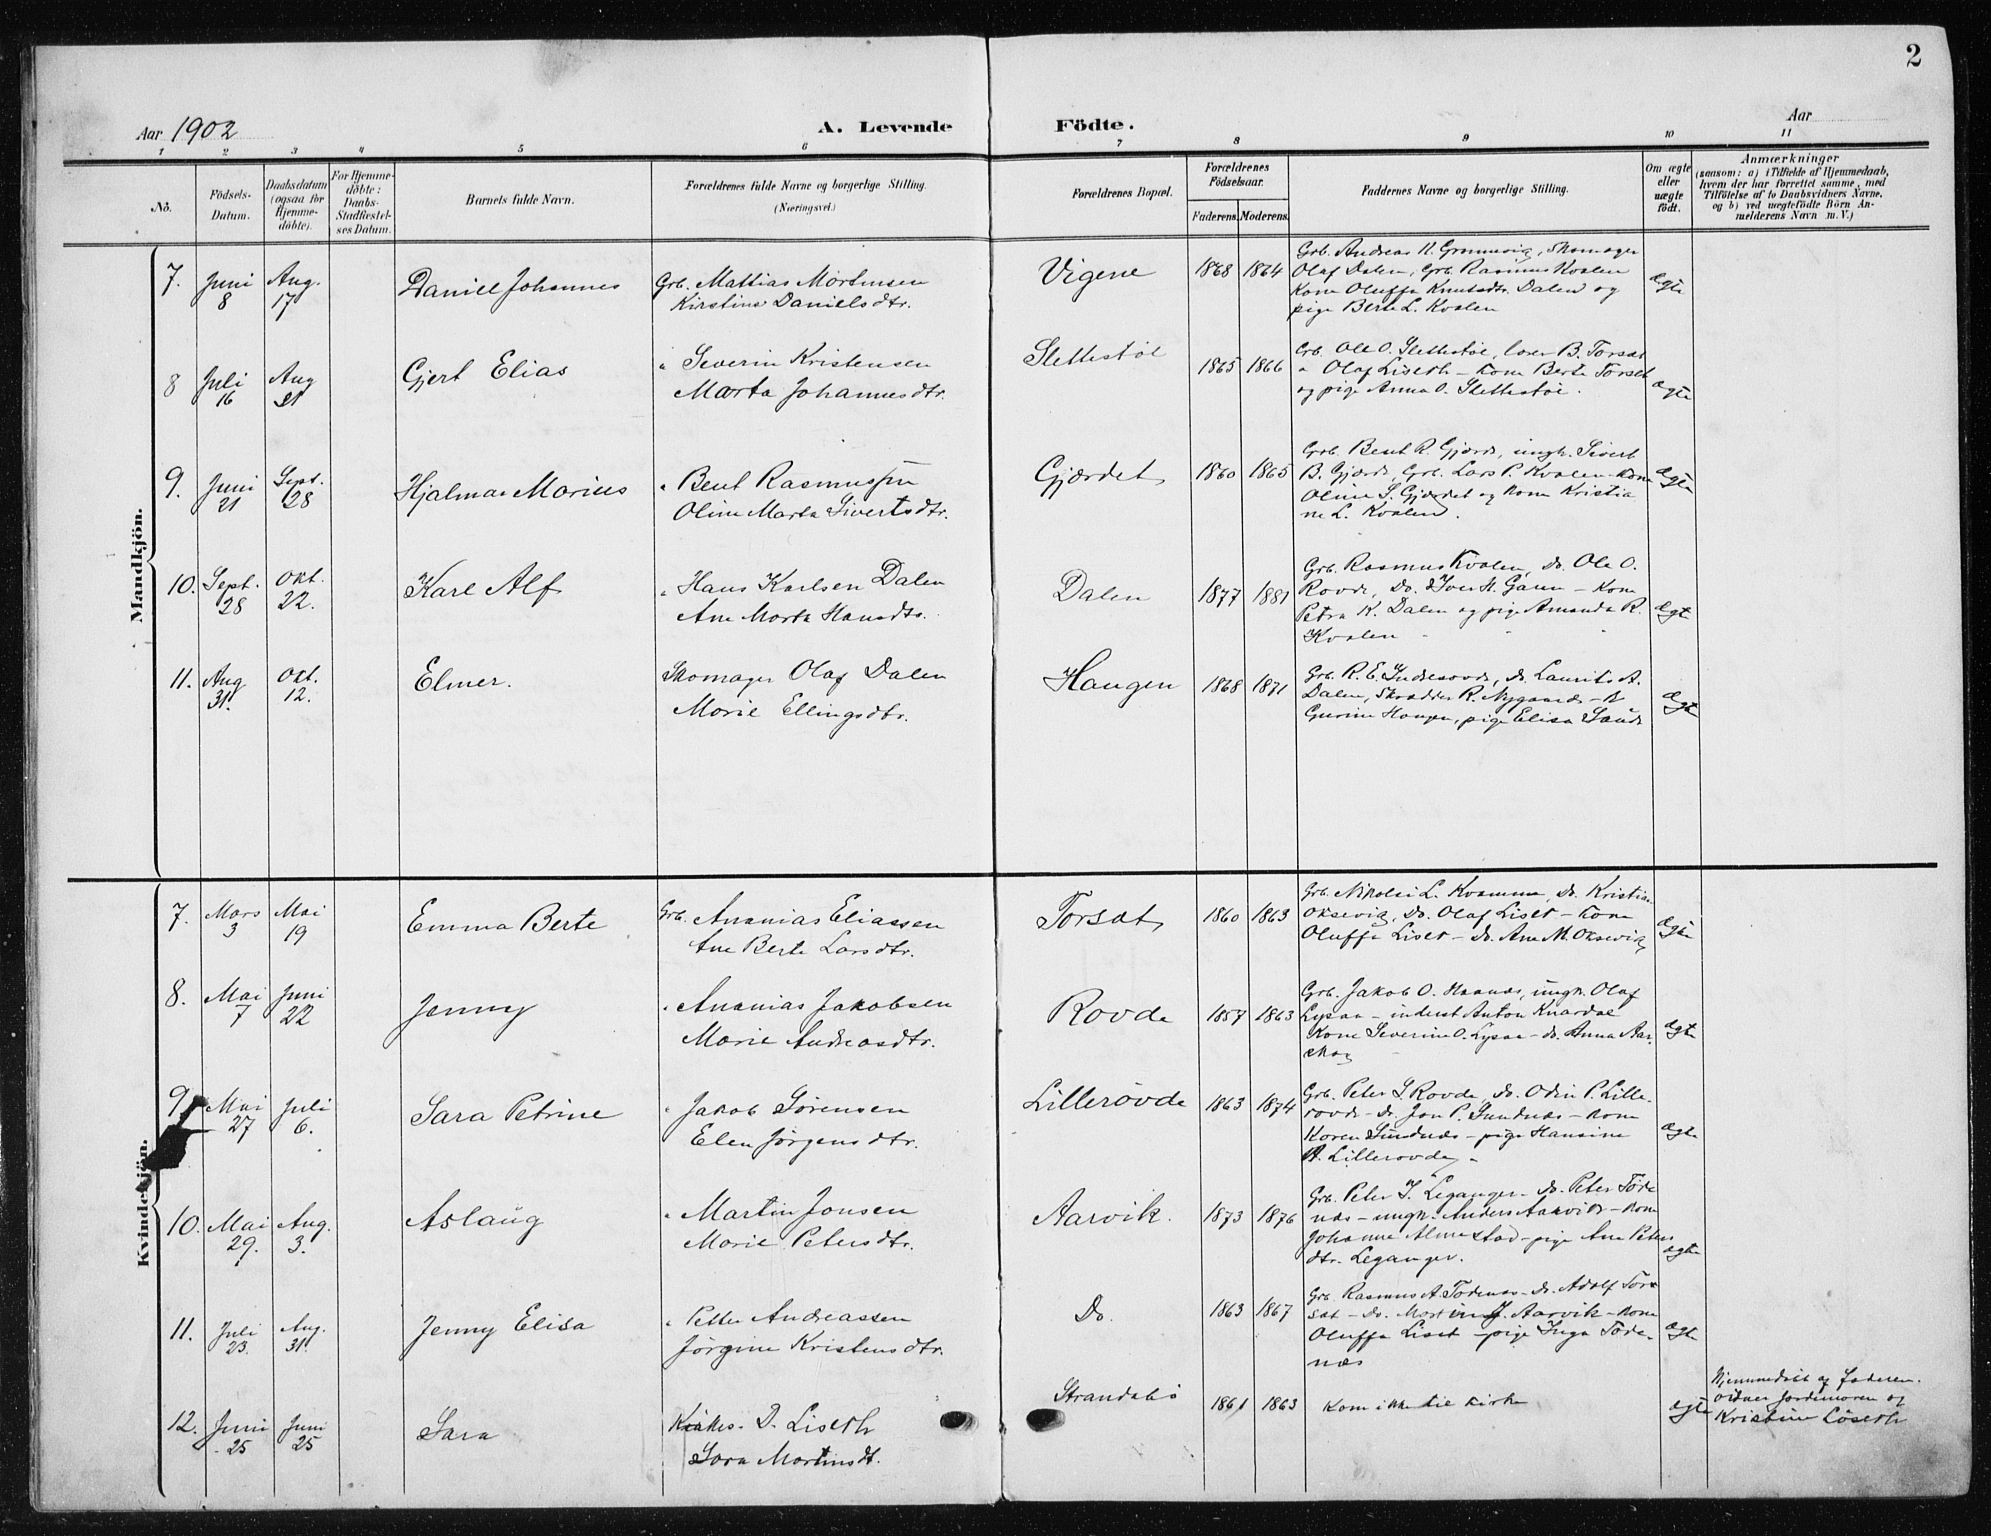 2
Aar 1902
A. Levende Födte.
Aar
1 2 3 4 5 6 7 8 9 10 11
No.
Födsels-Datum.
Daabsdatum (ogsaa for Hjemme-döbte).
For Hjemme-döbte: Daabs-Stadfestel-ses Datum.
Barnets fulde Navn.
Forældrenes fulde Navne og borgerlige Stilling. (Næringsvei.)
Forældrenes Bopæl.
Forældrenes Födselsaar.
Faderens. Moderens.
Faddernes Navne og borgerlige Stilling.
Om ægte eller uægte födt.
Anmærkninger
(saasom: a) i Tilfælde af Hjemmedaab, hvem der har forrettet samme, med Tilföielse af to Daabsvidners Navne, og b) ved uægtefödte Börn Anmelderens Navn m. V.)
Mandkjön.
7. Juni 8 Aug. 17 Daniel Johannes Grb. Mattias Mortensen
Kirstine Danielsdtr.
Vigene 1868 1864 Grb. Andreas H. Grønnevig, Skomager
Olaf Dalen, Grb. Rasmus Kvalen
Kone Oluffa Knutsdtr. Dalen og
pige Berte L. Kvalen
Ægte
8 Juli 16 Aug 31 Gjert Elias " Severin Kristensen
Marta Johannesdtr.
Slettestøl 1865 1866 Grb. Ole O. Slettestøl, lærer B. Torset
" Olaf Liseth - Kone Berte Torset
og pige Anna O. Slettestøl.
Ægte
9. Juni 21 Sept. 28 Hjalmar Marius " Bent Rasmussen
Oline Marta Sivertsdtr.
Gjærdet 1860 1865 Grb. Bent R. Gjærde, ungk. Sivert
B. Gjærde, Grb. Lars P. Kvalen - Kone
Oline S. Gjærdet og Kone Kristia
ne L. Kvalen.
Ægte
10. Sept. 28 Okt. 22. Karl Alf " Hans Karlsen Dalen
Ane Marta Hansdtr.
Dalen 1877 1881 Grb. Rasmus Kvalen, do. Ole O.
Rovde, Do. Iver H. - Kone
Petra K. Dalen og pige Amanda R.
Kvalen
Ægte
11. Aug 31. Okt. 12. Elmer. Skomager Olaf Dalen
Marie Ellingsdtr.
Haugen 1868 1871 Grb. R. E. Indresovde, do. Laurits A.
Dalen, Skrædder R. Nygaard -
Gurine Haugen, pige Elisa Sande
Ægte
Kvindekjön.
7. Mars 3 Mai 19 Emma Berte Grb. Ananias Eliassen
Ane Berte Larsdtr.
Torsæt 1860 1863 Grb. Nikolai L. Kvamme, do. Kristian
Oksevig, Do. Olaf Liset - Kone
Oluffa Liset - do. Ane M. Oksevig
Ægte
8. Mai 7 Juni 22 Jenny " Ananias Jakobsen
Marie Andreasdtr.
Rovde 1857 1863 Grb. Jakob O. Haanæs, ungk. Olaf
Lysaa - inderst Anton Knardal
Kone Severine O. Lysaa - do. Anna Aar
skog
Ægte
9 Mai 27 Juli 6. Sara Petrine " Jakob Sørensen
Elen Jørgensdtr.
Lillerovde 1863 1874 Grb. Peter S. Rovde, do. Odin P. Lille-
rovde - do. Jon P. Sundnæs - Kone
Karen Sundnæs - pige Hansine
A. Lillerovde -
Ægte
10. Mai 29. Aug. 3. Aslaug " Martin Jonsen
Marie Petersdtr.
Aarvik. 1873 1876 Grb. Peter J. Leganger - do. Peter Tøde
næs - ungk. Anders Aarvik - Kone
Johanne Almestad - pige Ane Peters
dtr. Leganger.
Ægte
11. Juli 23. Aug. 31 Jenny Elisa " Petter Andreassen
Jørgine Kristensdtr.
Do. 1863 1867 Grb. Rasmus A. Tødenæs - do. Adolf Tor
sæt - do. Martin J. Aarvik - Kone
Oluffa Liset - pige Inga Tøde-
næs
Ægte
12. Juni 25 Juni 25 Sara Kirkes. D. Liseth
Sara Martinsdt.
Strandabø 1861 1863 Kom ikke til Kirke Ægte
Hjemmedøbt af faderen.
vidner jordmoren og
Kristine Løseth